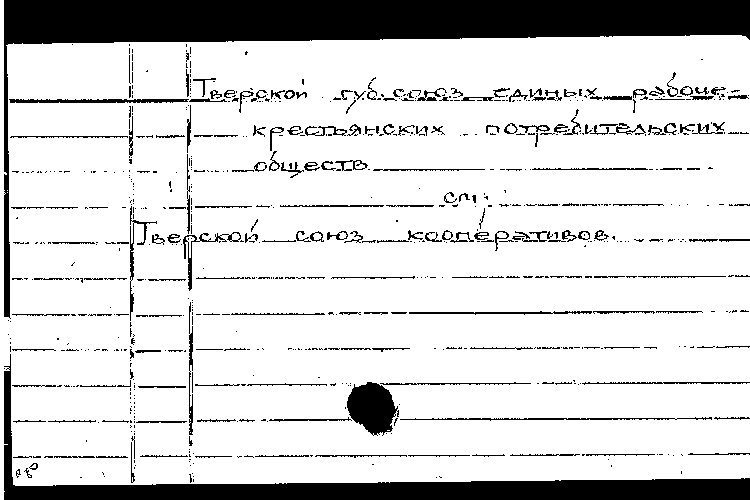 Тверской губ. союз единых рабоче-
крестьянских потребительских
обществ
см:
Тверской союз кооперативов.